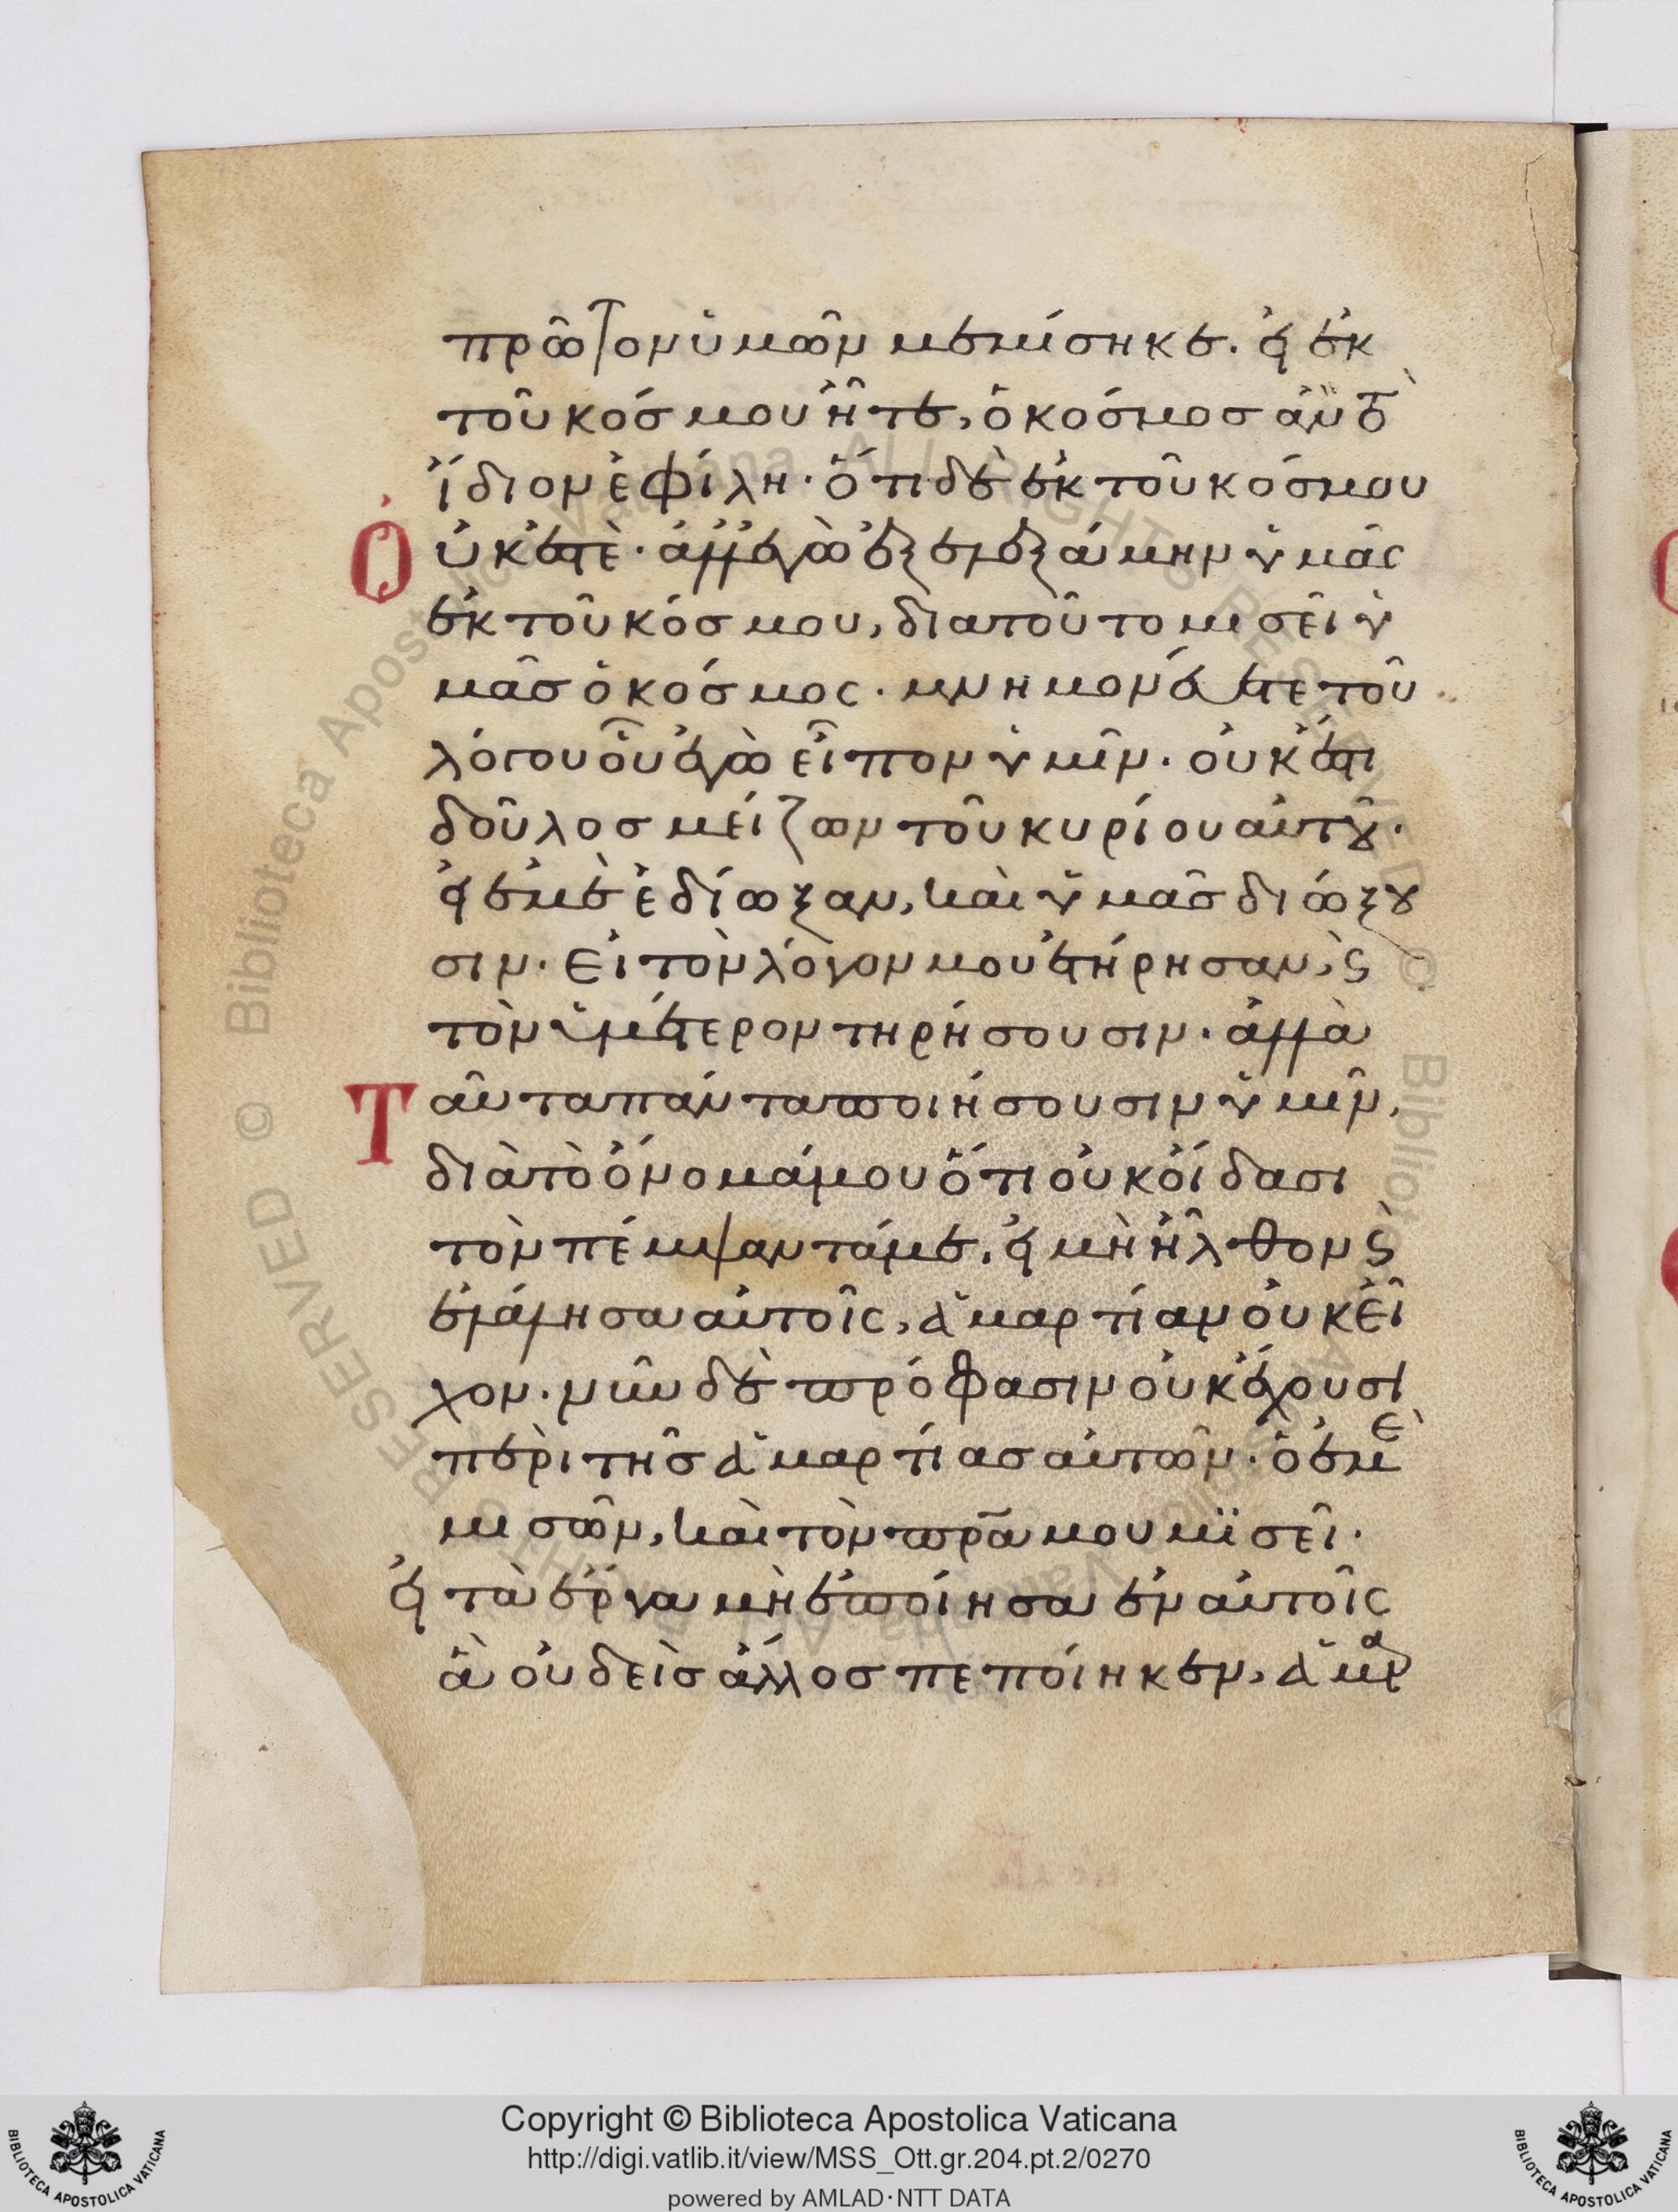 πρῶτον ὑμῶν μεμίσηκε. εἰ ἐκ
τοῦ κόσμου ἦτε, ὁ κόσμοσ ἂν τὸ
ἴδιον ἐφίλη. ὅτι δὲ ἐκ τοῦ κόσμου
Οὐκ ἐστὲ. ἀλλ ἐγὼ ἐξελεξάμην ὑμᾶς
ἐκ τοῦ κόσμου, διατοῦτο μισεῖ ὑ
μᾶσ ὁ κόσμος. μνημονεύετε τοῦ
λόγου οὗ ἐγὼ εἶπον ὑμῖν. οὐκ ἔστι
δοῦλοσ μείζων τοῦ κυρίου αὐτοῦ.
εἰ ἐμὲ ἐδίωξαν, καὶ ὑμᾶσ διώξου
σιν. Εἰ τὸν λόγον μου ἐτήρησαν, ϛ
τὸν ὑμέτερον τηρήσουσιν. ἀλλὰ
Ταῦτα πάντα ποιήσουσιν ὑμῖν,
διὰ τὸ ὄνομά μου ὅτι οὐκ οἴδασι
τὸν πέμψαντά με. εἰ μὴ ἦλθον ϛ
ἐλάλησα αὐτοῖς, ἁμαρτίαν οὐκ εἶ
χον. νῦν δὲ πρόφασιν οὐκ ἔχουσι
περὶ τῆσ ἁμαρτίασ αὐτῶν. ὁ ἐμὲ
μισῶν, καὶ τὸν πρ̅α μου μϊσεῖ.
εἰ τὰ ἔργα μὴ ἐποίησα ἐν αὐτοῖς
ἃ οὐδεὶσ ἄλλοσ πεποίηκεν, ἁμαρ
Copyright © Biblioteca Apostolica Vaticana
http://digi.vatlib.it/view/MSS_Ott.gr.204.pt.2/0270
powered by AMLAD·NTT DATA
BIBLIOTECA APOSTOLICA VATICANA
BIBLIOTECA APOSTOLICA VATICANA